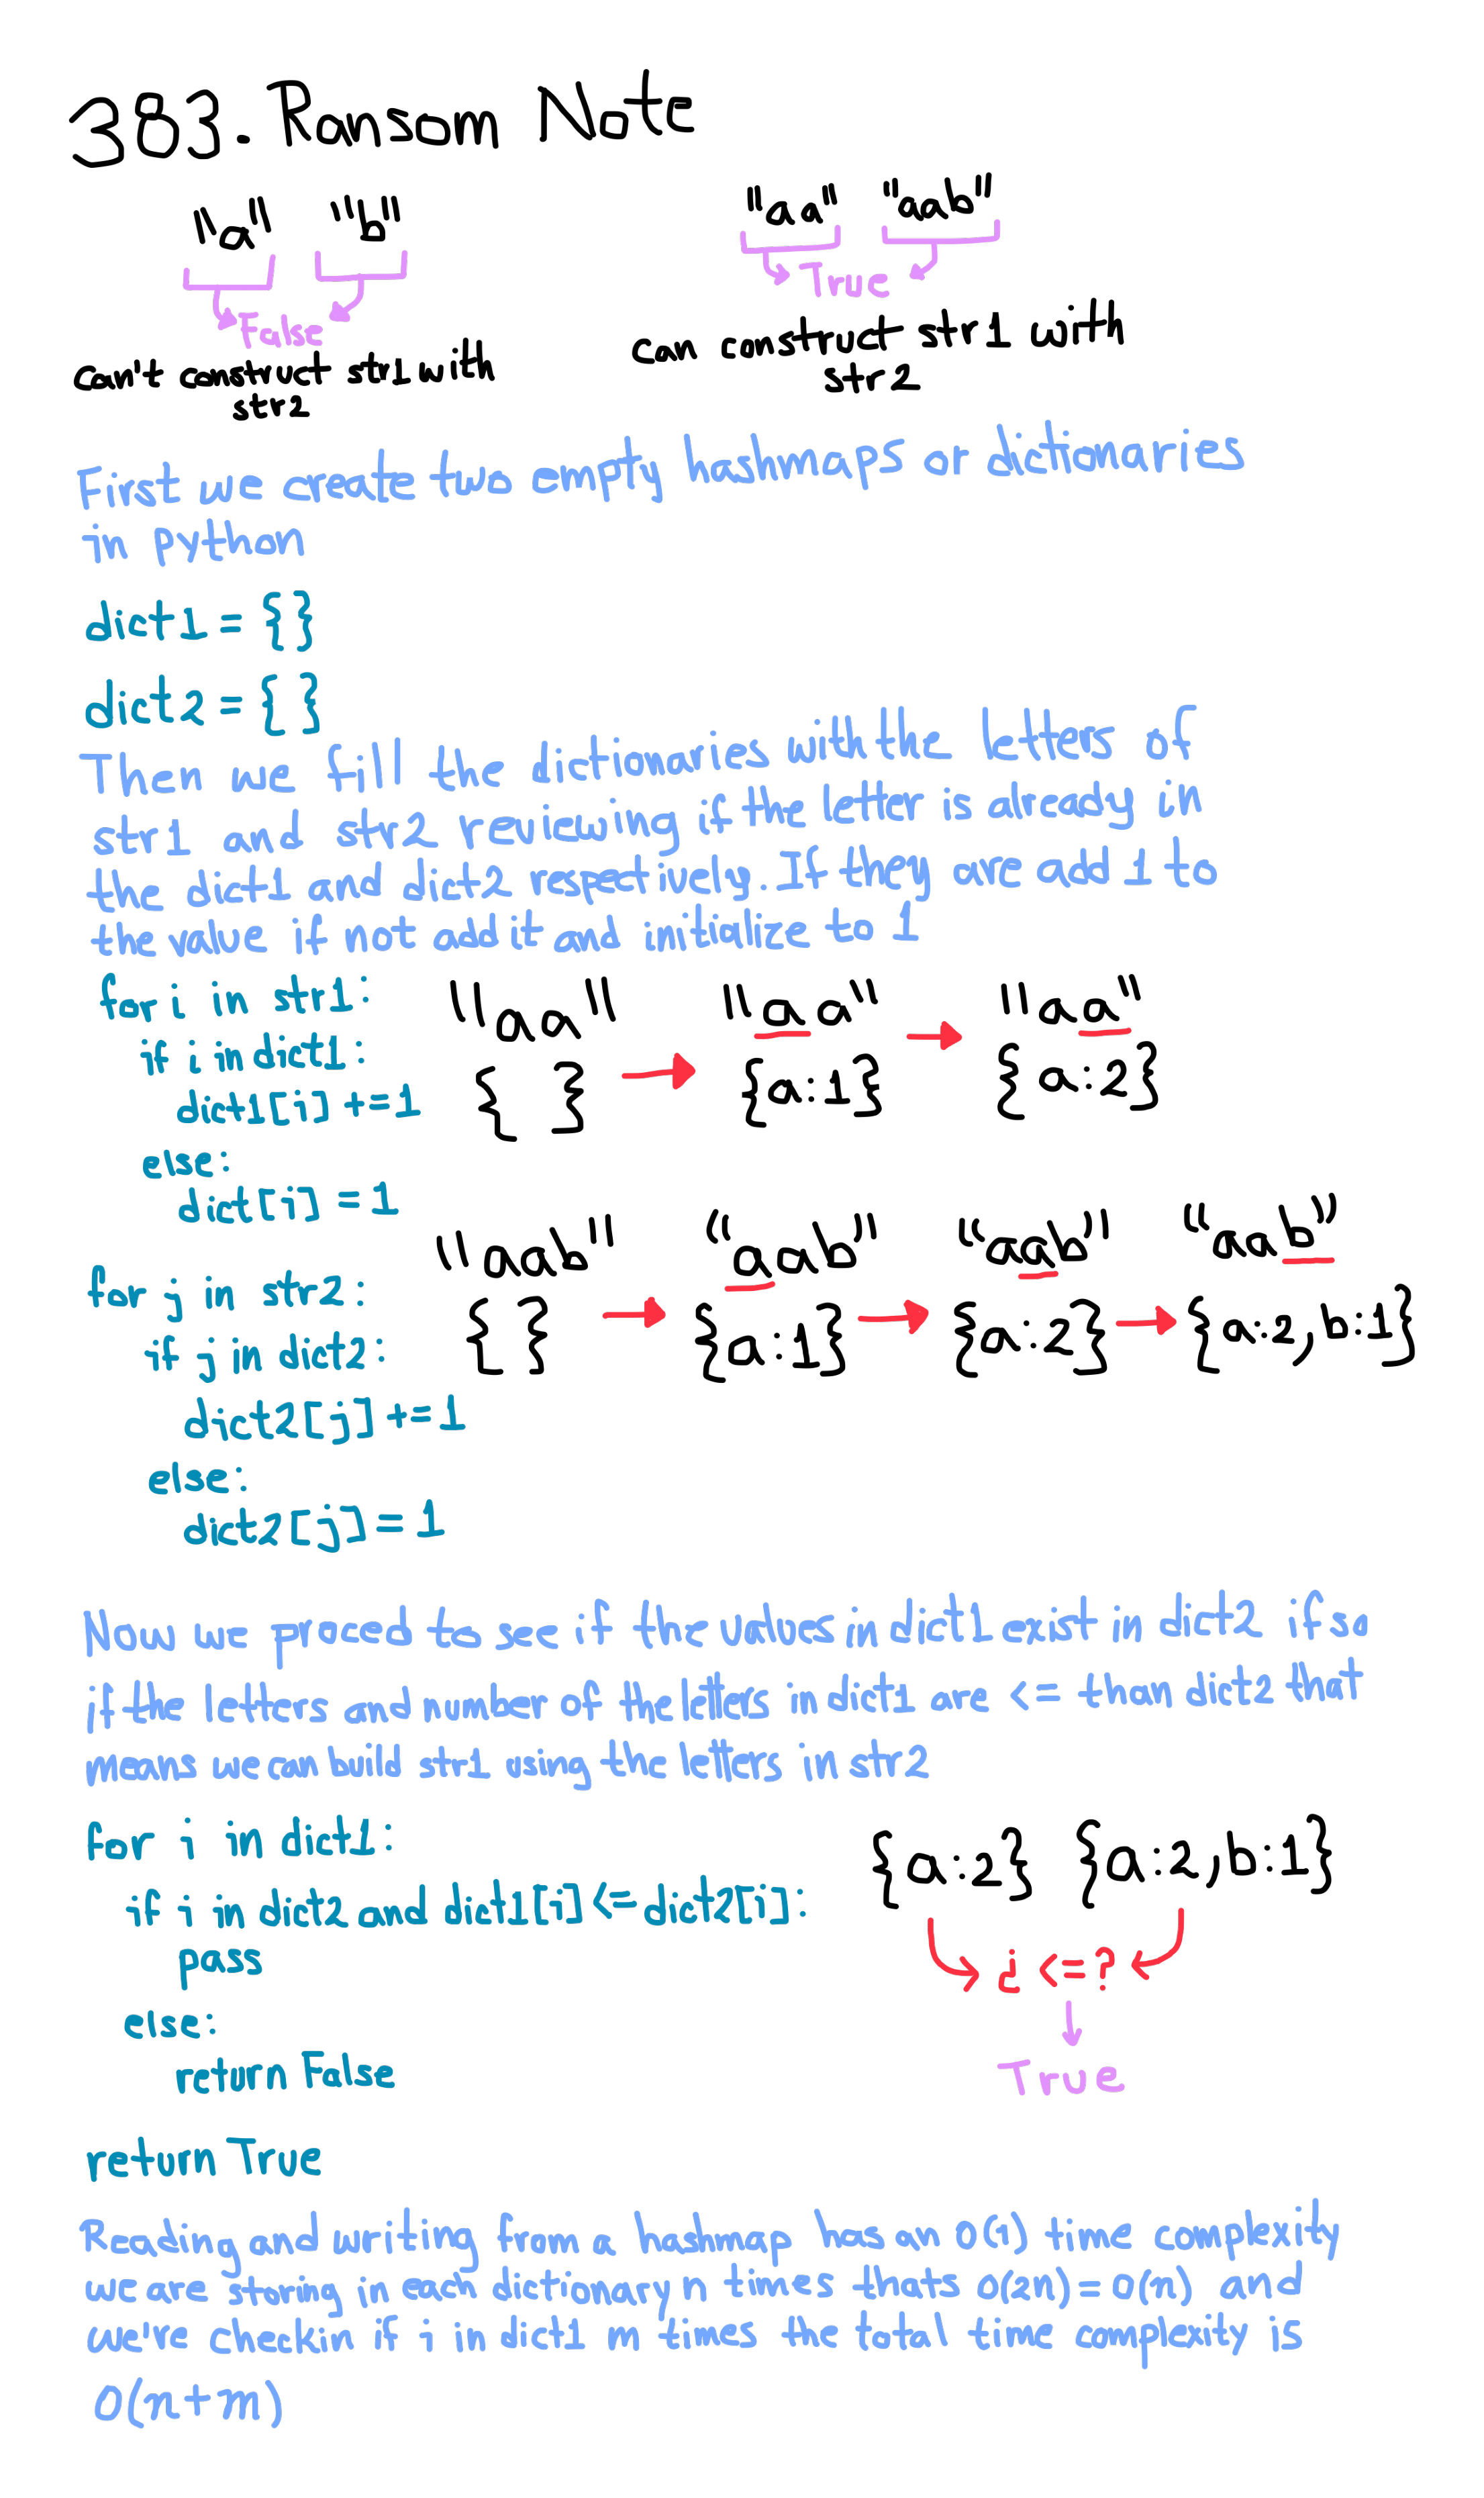 383. Ransom Note
"a" "b" "aa" "aab"
False True
can't construct str1 with can construct str1 with
str2 str2
First we create two empty hashmaps or dictionaries
in python
dict1 = {}
dict2 = { }
Then we fill the dictionaries with the letters of
str1 and str2 reviewing if the letter is already in
the dict1 and dict2 respectively. If they are add 1 to
the value if not add it and initialize to 1
for i in str1: "aa" "aa" "aa"
if i in dict1: { } {a:1} {a:2}
dict1[i] += 1
else:
dict[i] = 1
"aab" "aab" "aab" "aab"
for j in str2: { } {a:1} {a:2} {a:2, b:1}
if j in dict2:
dict2[j] += 1
else:
dict2[j] = 1
Now we proced to see if the values in dict1 exist in dict2 if so
if the letters and number of the letters in dict1 are <= than dict2 that
means we can build str1 using the letters in str2
for i in dict1: {a:2} {a:2, b:1}
if i in dict2 and dict1[i] <= dict2[i]:
pass ¿ <= ?
else:
return False True
return True
Reading and writing from a hashmap has an O(1) time complexity
we are storing in each dictionary n times thats O(2n) = O(n) and
we're checkin if i in dict1 m times the total time complexity is
O(n+m)